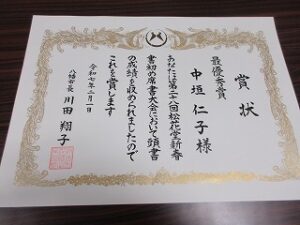 賞状
最優秀賞
中垣仁子様
あなたは第二八回松花堂新春
書初め席書大会において頭書
の成績を収められましたので
これを賞します
令和七年二月一日
八幡市長 川田翔子